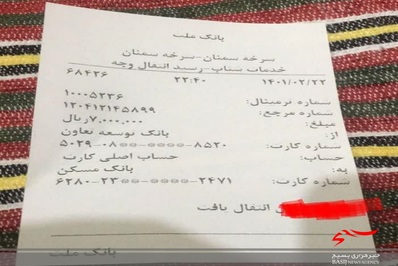 بانک ملت
سرخه سمنان-سرخه سمنان
خدمات ستاپ-رسید انتقال وجه
۱۴۰۱/۰۲/۲۲ ۲۲:۴۰ ۶۸۴۲۶
شماره ترمینال: ۱۰۰۰۵۲۲۶
شماره مرجع: ۱۲۰۴۱۲۱۴۵۸۹۹
مبلغ: ۷,۰۰۰,۰۰۰ریال
از: بانک توسعه تعاون
شماره کارت: ۵۰۲۹-۰۸**-****-۸۵۲۰
حساب: حساب اصلی کارت
به: بانک مسکن
شماره کارت: ۶۲۸۰-۲۳**-****-۲۴۷۱
انتقال یافت
بانک ملت
خبرگزاری بسیج
BASIJ NEWS AGENCY